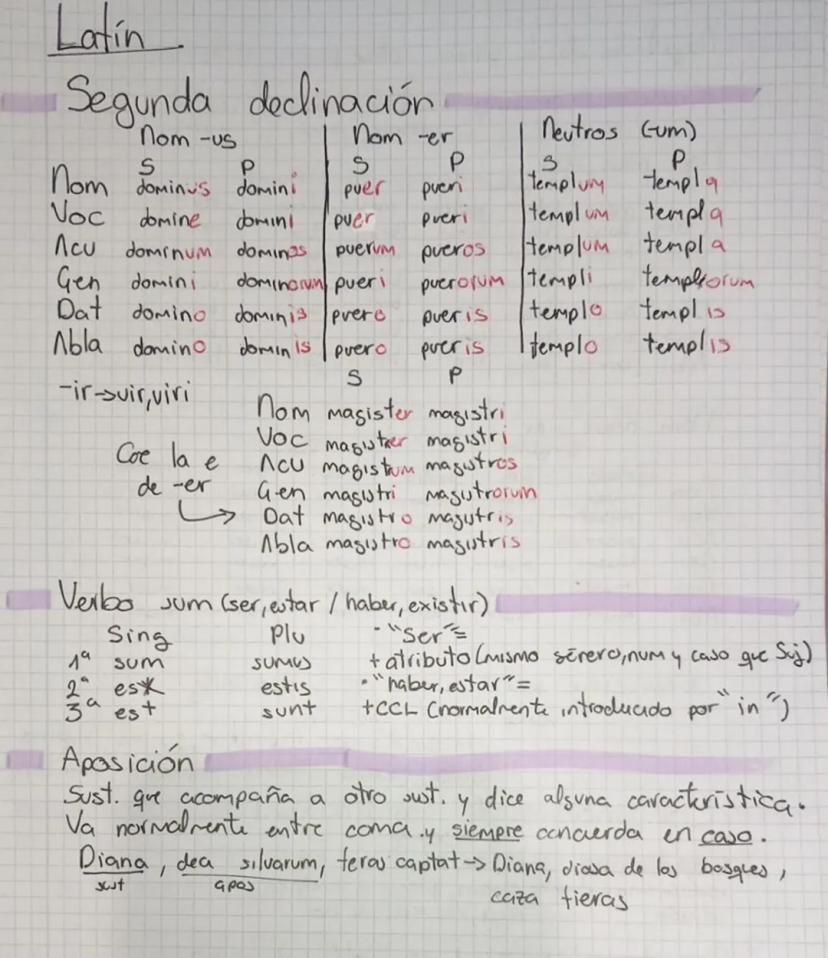 Latín
Segunda declinación
Nom -us Nom -er Neutros (-um)
S P S P S P
Nom dominus domini puer pueri templum templa
Voc domine domini puer pueri templum templa
Acu dominum dominos puerum pueros templum templa
Gen domini dominorum pueri puerorum templi templorum
Dat domino dominis puero pueris templo templis
Abla domino dominis puero pueris templo templis
S P
-ir→vir,viri
Nom magister magistri
Voc magister magistri
Cae la e Acu magistrum magistros
de -er Gen magistri magistrorum
Dat magistro magistris
Abla magistro magistris
Verbo sum (ser, estar / haber, existir)
Sing Plu ·"ser"=
1ª sum sumus + atributo (mismo género, num y caso que Suj)
2ª es estis ·"haber, estar"=
3ª est sunt +CCL (normalmente introducido por "in")
Aposición
Sust. que acompaña a otro sust. y dice alguna característica.
Va normalmente entre coma.y siempre concuerda en caso.
Diana, dea silvarum, feras captat→Diana, diosa de los bosques,
sust apos caza fieras